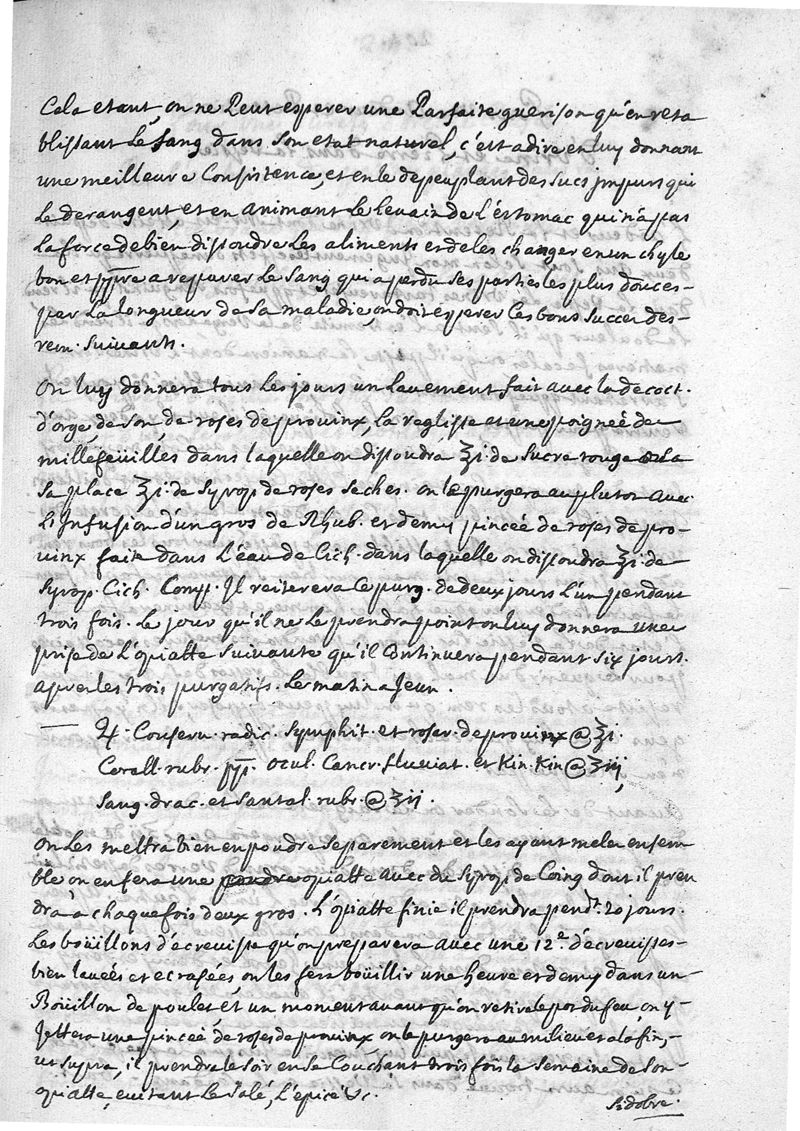 Cela etant, on ne Peut esperer une Parfaite guerison qu'en reta
blissant Le sang dans son etat naturel, c'est adire en luy donnant
une meilleure Consistence, et en le depeuplant des sucs jmpurs qui
Le derangent, et en animant le levain de L'estomac qui n'a pas
La force de bien dissoudre Les aliments et de les changer en un chyle
bon et ppre a reparer Le sang qui a perdu ses parties les plus douces
par La longueur de sa maladie, on doit esperer Les bons succez des
rem. suivants.
On luy donnera tous Les jours un Lavement fait avec la decoct.
d'orge, de son, de roses de provinx, la reglisse et une poignée de
millefeüilles dans laquelle on dissoudra ℥i. de sucre rouge ou a
sa place ℥i. de syrop de roses seches. on le purgera au plutot avec
L'Infusion d'un gros de Rhub. et demy pincée de roses de pro-
vinx faite dans L'eau de Cich. dans laquelle on dissoudra ℥i. de
syrop. Cich. Comp. Il reiterera ce purg. de deux jours L'un pendant
trois fois. Le jour qu'il ne Le prendra point on luy donnera une
prise de L'opiatte suivante qu'il Continuera pendant six jours.
apres les trois purgatifs. Le matin a Jeun.
♃. Conserv. radic. symphit. et rosar. de provinx @ ℥i.
Corall. rubr. ppp. ocul. Cancr. fluviat. et Kin. Kin @ ʒiij
sang. drac. et santal. rubr. @ ʒij.
on Les mettra bien en poudre separement et les ayant melez ensem
ble on en fera une opiatte avec du syrop de Coing dont il pren
dra a chaque fois deux gros. L'opiatte finie il prendra pendt. 20 jours.
Les boüillons d'ecrevisse qu'on preparera avec une 12e. d'ecrevisses
bien lavées et ecrasées, on les fera boüillir une heure et demy dans un
Boüillon de poulet, et un moment avant qu'on retire le pot du feu, on y
Jettera une pincée de roses de provinx, on le purgera au milieu et a la fin,
ut supra, il prendra le soir en se Couchant trois fois la semaine de son
opiatte, evitant Le salé, L'epicé &c.
Sidobre.